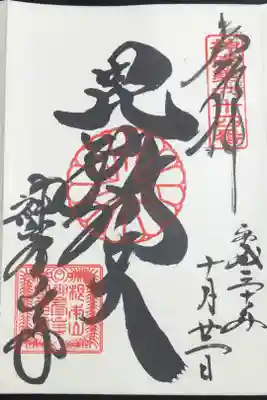 奉拝
毘沙門天
平成三十年
十月廿一日
神峯山寺